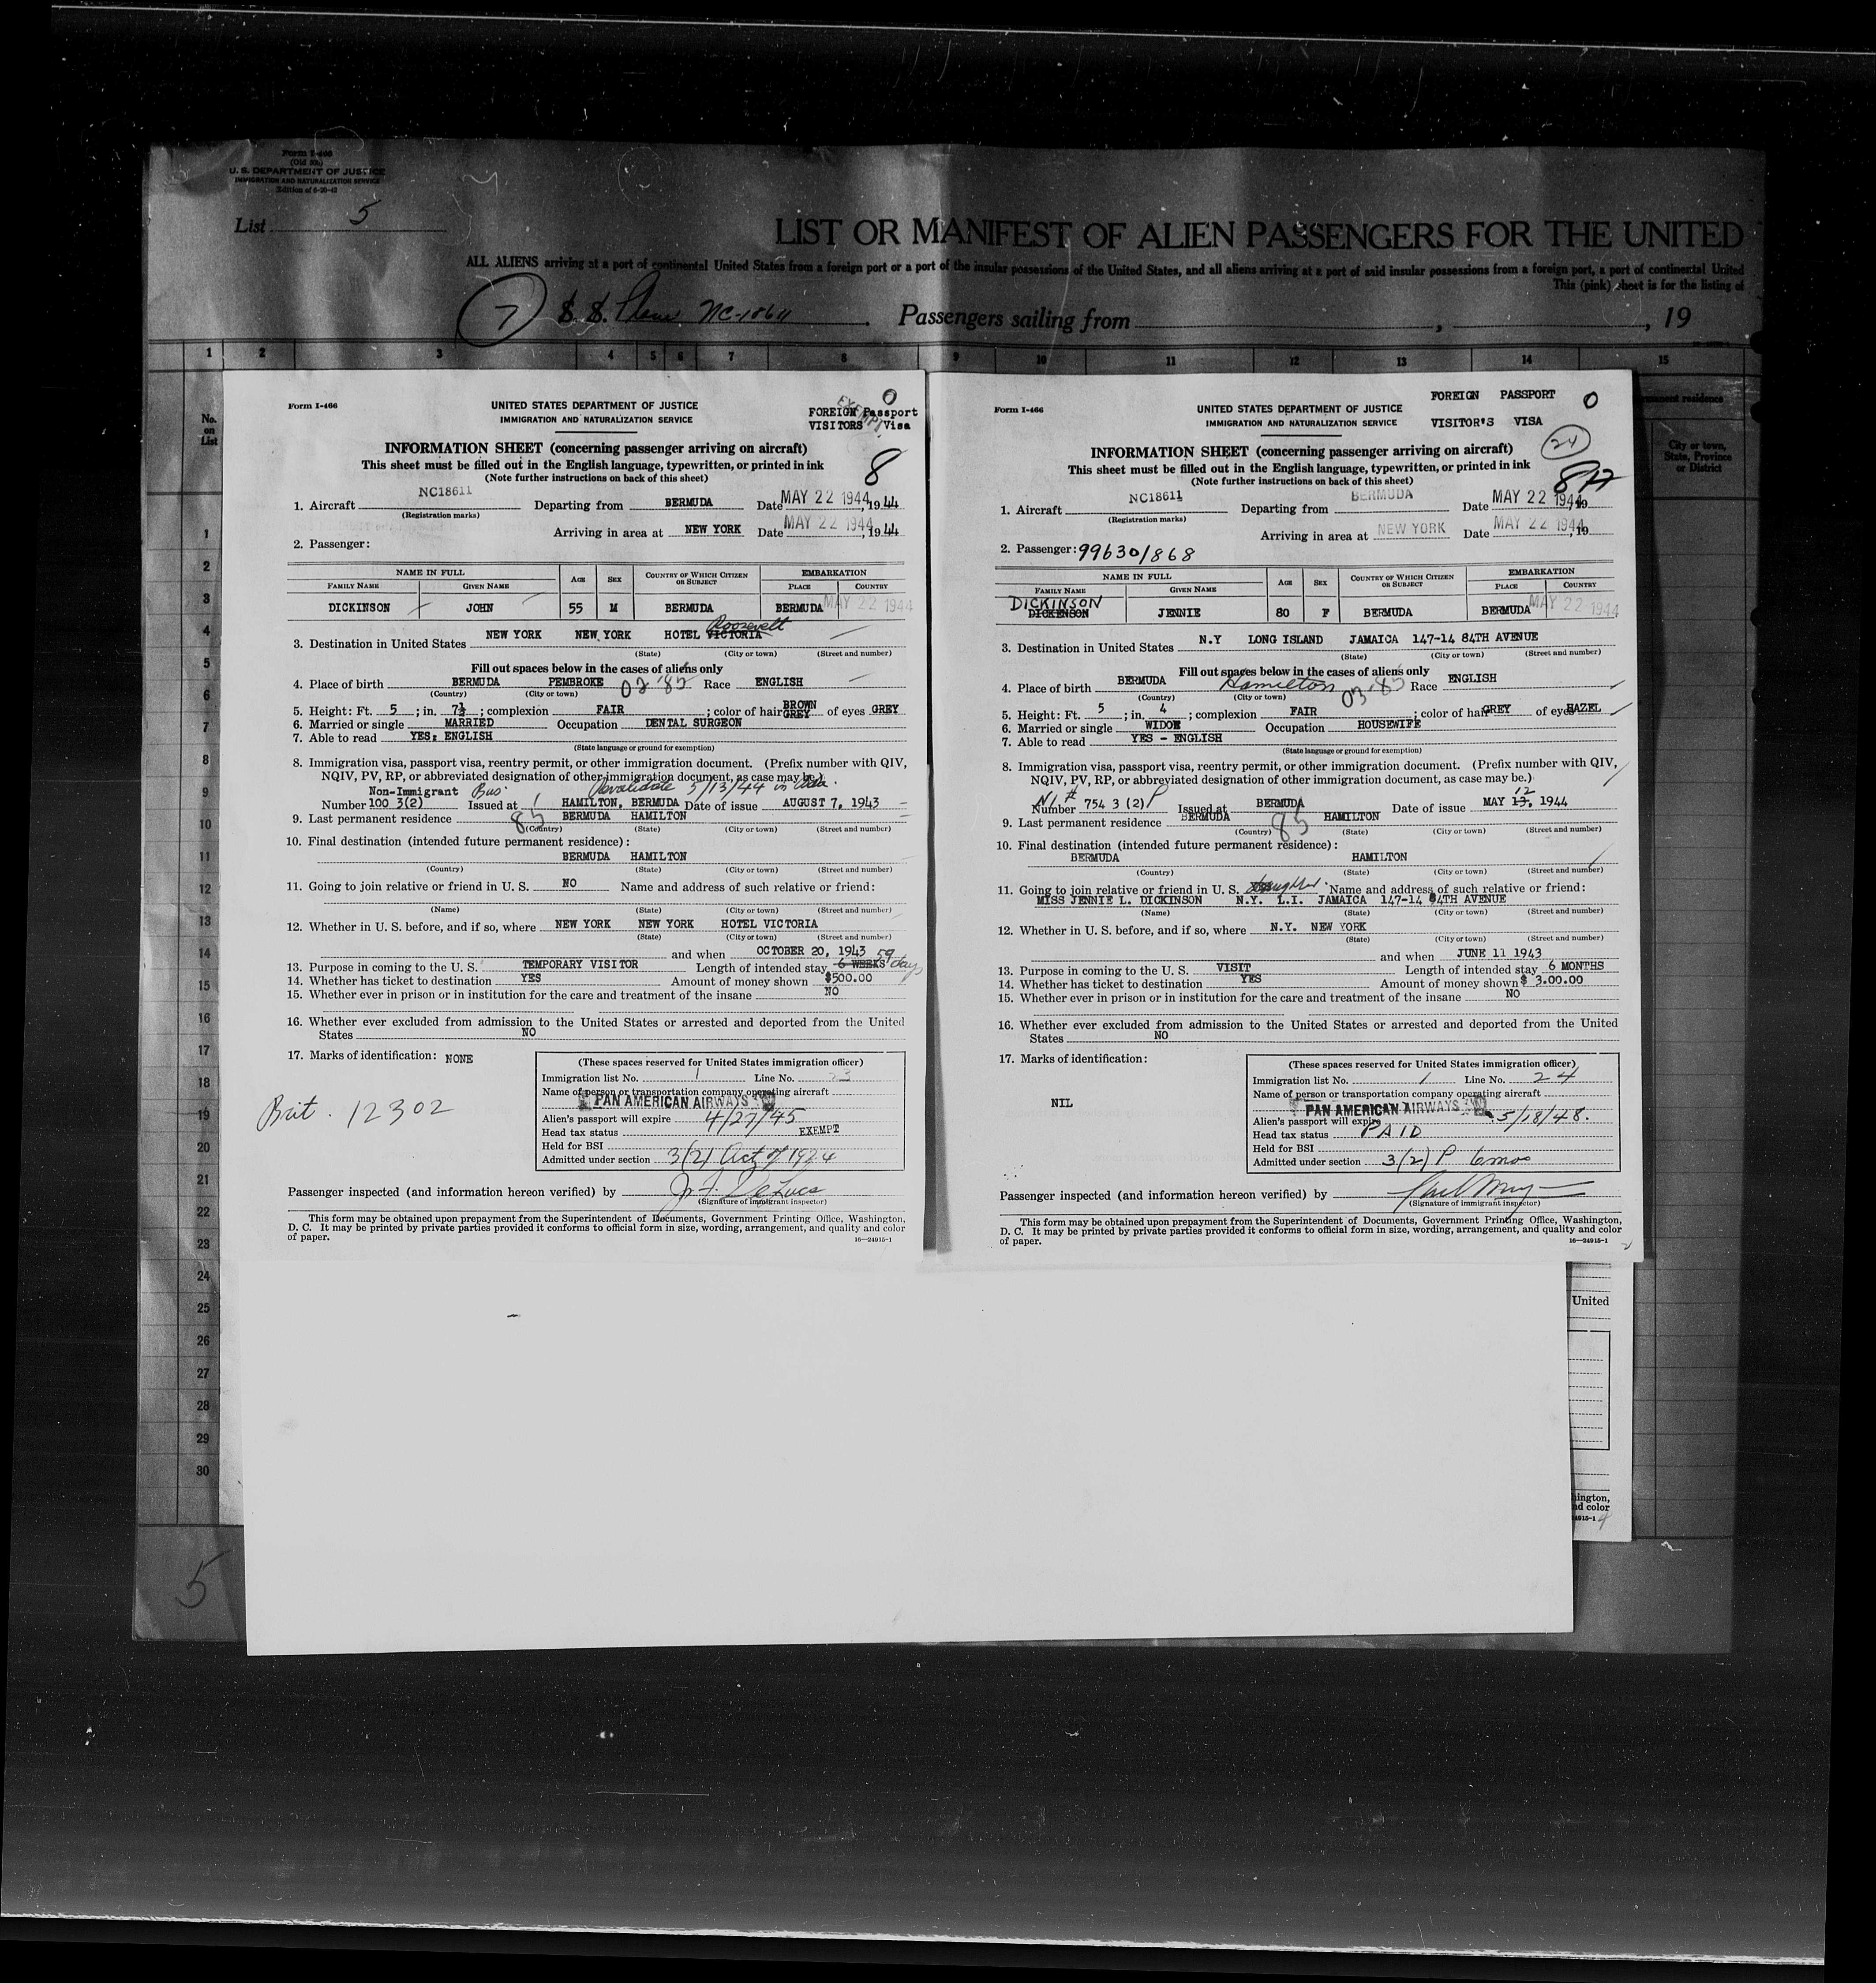 Form I-466
(Old No.)
U. S. DEPARTMENT OF JUSTICE
IMMIGRATION AND NATURALIZATION SERVICE
Edition of 6-20-42
List 5
LIST OR MANIFEST OF ALIEN PASSENGERS FOR THE UNITED
ALL ALIENS arriving at a port of continental United States from a foreign port or a port of the insular possessions of the United States, and all aliens arriving at a port of said insular possessions from a foreign port, a port of continental United
This (pink) sheet is for the listing of
7 S. S. Plane NC-18611 Passengers sailing from , , 19
1 2 3 4 5 6 7 8 9 10 11 12 13 14 15
No. on List
permanent residence
City or town, State, Province or District
1
2
3
4
5
6
7
8
9
10
11
12
13
14
15
16
17
18
19
20
21
22
23
24
25
26
27
28
29
30
5
Form I-466
UNITED STATES DEPARTMENT OF JUSTICE
IMMIGRATION AND NATURALIZATION SERVICE
0
EXEMPT
FOREIGN Passport
VISITORS Visa
INFORMATION SHEET (concerning passenger arriving on aircraft)
This sheet must be filled out in the English language, typewritten, or printed in ink
(Note further instructions on back of this sheet)
8
1. Aircraft NC18611 Departing from BERMUDA Date MAY 22 1944, 1944
(Registration marks)
Arriving in area at NEW YORK Date MAY 22 1944, 1944
2. Passenger:
NAME IN FULL AGE SEX COUNTRY OF WHICH CITIZEN OR SUBJECT EMBARKATION
FAMILY NAME GIVEN NAME PLACE COUNTRY
DICKINSON JOHN 55 M BERMUDA BERMUDA MAY 22 1944
Roosevelt
3. Destination in United States NEW YORK NEW YORK HOTEL VICTORIA
(State) (City or town) (Street and number)
Fill out spaces below in the cases of aliens only
4. Place of birth BERMUDA PEMBROKE 03-85 Race ENGLISH
(Country) (City or town)
5. Height: Ft. 5 ; in. 7½ ; complexion FAIR ; color of hair BROWN GREY of eyes GREY
6. Married or single MARRIED Occupation DENTAL SURGEON
7. Able to read YES: ENGLISH
(State language or ground for exemption)
8. Immigration visa, passport visa, reentry permit, or other immigration document. (Prefix number with QIV,
NQIV, PV, RP, or abbreviated designation of other immigration document, as case may be.)
Non-Immigrant Bus. Revalidate 5/13/44 in Bda.
Number 100 3(2) Issued at HAMILTON, BERMUDA Date of issue AUGUST 7, 1943
9. Last permanent residence 85 BERMUDA HAMILTON
(Country) (State) (City or town) (Street and number)
10. Final destination (intended future permanent residence):
BERMUDA HAMILTON
(Country) (State) (City or town) (Street and number)
11. Going to join relative or friend in U. S. NO Name and address of such relative or friend:
(Name) (State) (City or town) (Street and number)
12. Whether in U. S. before, and if so, where NEW YORK NEW YORK HOTEL VICTORIA
(State) (City or town) (Street and number)
and when OCTOBER 20, 1943
13. Purpose in coming to the U. S. TEMPORARY VISITOR Length of intended stay 6 WEEKS 59 days
14. Whether has ticket to destination YES Amount of money shown $500.00
15. Whether ever in prison or in institution for the care and treatment of the insane NO
16. Whether ever excluded from admission to the United States or arrested and deported from the United
States NO
17. Marks of identification: NONE
(These spaces reserved for United States immigration officer)
Immigration list No. 1 Line No. 23
Name of person or transportation company operating aircraft
PAN AMERICAN AIRWAYS
Alien's passport will expire 4/27/45
Head tax status EXEMPT
Held for BSI
Admitted under section 3(2) Act of 1924
Brit. 12302
Passenger inspected (and information hereon verified) by J. F. DeLuca
(Signature of immigrant inspector)
This form may be obtained upon prepayment from the Superintendent of Documents, Government Printing Office, Washington,
D. C. It may be printed by private parties provided it conforms to official form in size, wording, arrangement, and quality and color
of paper.
16—24915-1
Form I-466
UNITED STATES DEPARTMENT OF JUSTICE
IMMIGRATION AND NATURALIZATION SERVICE
FOREIGN PASSPORT
VISITOR'S VISA
0
24
INFORMATION SHEET (concerning passenger arriving on aircraft)
This sheet must be filled out in the English language, typewritten, or printed in ink
(Note further instructions on back of this sheet)
1. Aircraft NC18611 Departing from BERMUDA Date MAY 22 1944, 19
(Registration marks)
Arriving in area at NEW YORK Date MAY 22 1944, 19
2. Passenger: 99630/868
NAME IN FULL AGE SEX COUNTRY OF WHICH CITIZEN OR SUBJECT EMBARKATION
FAMILY NAME GIVEN NAME PLACE COUNTRY
DICKINSON
DICKENSON JENNIE 80 F BERMUDA BERMUDA MAY 22 1944
3. Destination in United States N.Y LONG ISLAND JAMAICA 147-14 84TH AVENUE
(State) (City or town) (Street and number)
Fill out spaces below in the cases of aliens only
4. Place of birth BERMUDA Hamilton 03-85 Race ENGLISH
(Country) (City or town)
5. Height: Ft. 5 ; in. 4 ; complexion FAIR ; color of hair GREY of eyes HAZEL
6. Married or single WIDOW Occupation HOUSEWIFE
7. Able to read YES - ENGLISH
(State language or ground for exemption)
8. Immigration visa, passport visa, reentry permit, or other immigration document. (Prefix number with QIV,
NQIV, PV, RP, or abbreviated designation of other immigration document, as case may be.)
NI #
Number 754 3 (2) P Issued at BERMUDA Date of issue MAY 13, 12 1944
9. Last permanent residence BERMUDA 85 HAMILTON
(Country) (State) (City or town) (Street and number)
10. Final destination (intended future permanent residence):
BERMUDA HAMILTON
(Country) (State) (City or town) (Street and number)
11. Going to join relative or friend in U. S. daughter. Name and address of such relative or friend:
MISS JENNIE L. DICKINSON N.Y. L.I. JAMAICA 147-14 84TH AVENUE
(Name) (State) (City or town) (Street and number)
12. Whether in U. S. before, and if so, where N.Y. NEW YORK
(State) (City or town) (Street and number)
and when JUNE 11 1943
13. Purpose in coming to the U. S. VISIT Length of intended stay 6 MONTHS
14. Whether has ticket to destination YES Amount of money shown $ 3.00.00
15. Whether ever in prison or in institution for the care and treatment of the insane NO
16. Whether ever excluded from admission to the United States or arrested and deported from the United
States NO
17. Marks of identification:
NIL
(These spaces reserved for United States immigration officer)
Immigration list No. 1 Line No. 24
Name of person or transportation company operating aircraft
PAN AMERICAN AIRWAYS
Alien's passport will expire 5/18/48.
Head tax status PAID
Held for BSI
Admitted under section 3(2) P 6mos
Passenger inspected (and information hereon verified) by
(Signature of immigrant inspector)
This form may be obtained upon prepayment from the Superintendent of Documents, Government Printing Office, Washington,
D. C. It may be printed by private parties provided it conforms to official form in size, wording, arrangement, and quality and color
of paper.
16—24915-1
United
hington,
nd color
4915-1